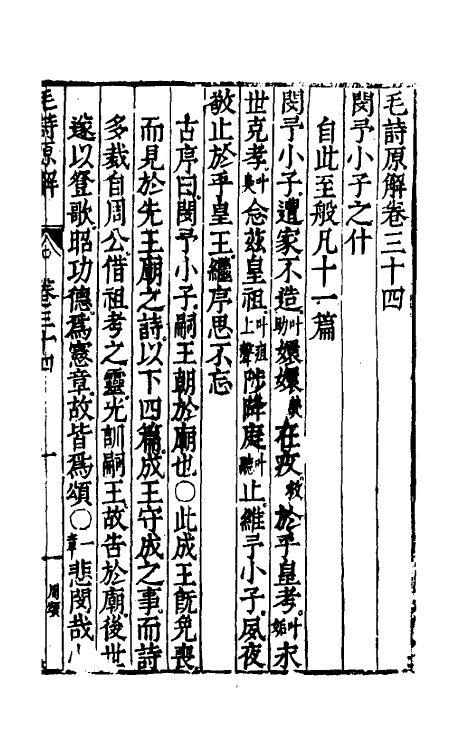 毛詩原解卷三十四
閔予小子之什
自此至般凡十一篇
閔予小子遭家不造叶助嬛嬛在疚救於乎皇考叶姤永
世克孝叶臭念茲皇祖叶祖上聲陟降庭叶聽止維予小子夙夜
敬止於乎皇王繼序思不忘
古序曰閔予小子嗣王朝於廟也○此成王既免喪
而見於先王廟之詩以下四篇成王守成之事而詩
多載自周公借祖考之靈光訓嗣王故告於廟後世
遂以登歌昭功德爲憲章故皆爲頌○一章悲閔哉
毛詩原解 卷三十四 一 周頌